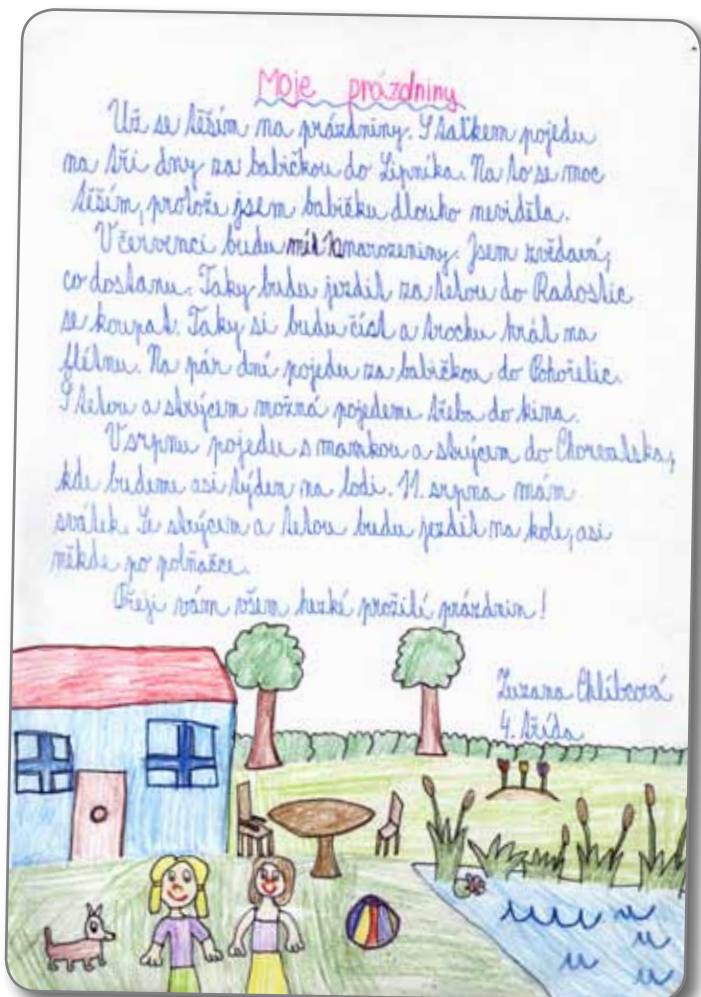 Moje prázdniny
Už se těším na prázdniny. S taťkem pojedu
na tři dny za babičkou do Lipníka. Na to se moc
těším, protože jsem babičku dlouho neviděla.
V červenci budu mít narozeniny. Jsem zvědavá,
co dostanu. Taky budu jezdit za tetou do Radostic
se koupat. Taky si budu číst a trochu hrát na
flétnu. Na pár dní pojedu za babičkou do Pohořelic.
S tetou a strýcem možná pojedeme třeba do kina.
V srpnu pojedu s mamkou a strýcem do Chorvatska,
kde budeme asi týden na lodi. 11. srpna mám
svátek. Se strýcem a tetou budu jezdit na kole, asi
někde po polňačce.
Přeji vám všem hezké prožití prázdnin!
Zuzana Chlíbcová
4. třída